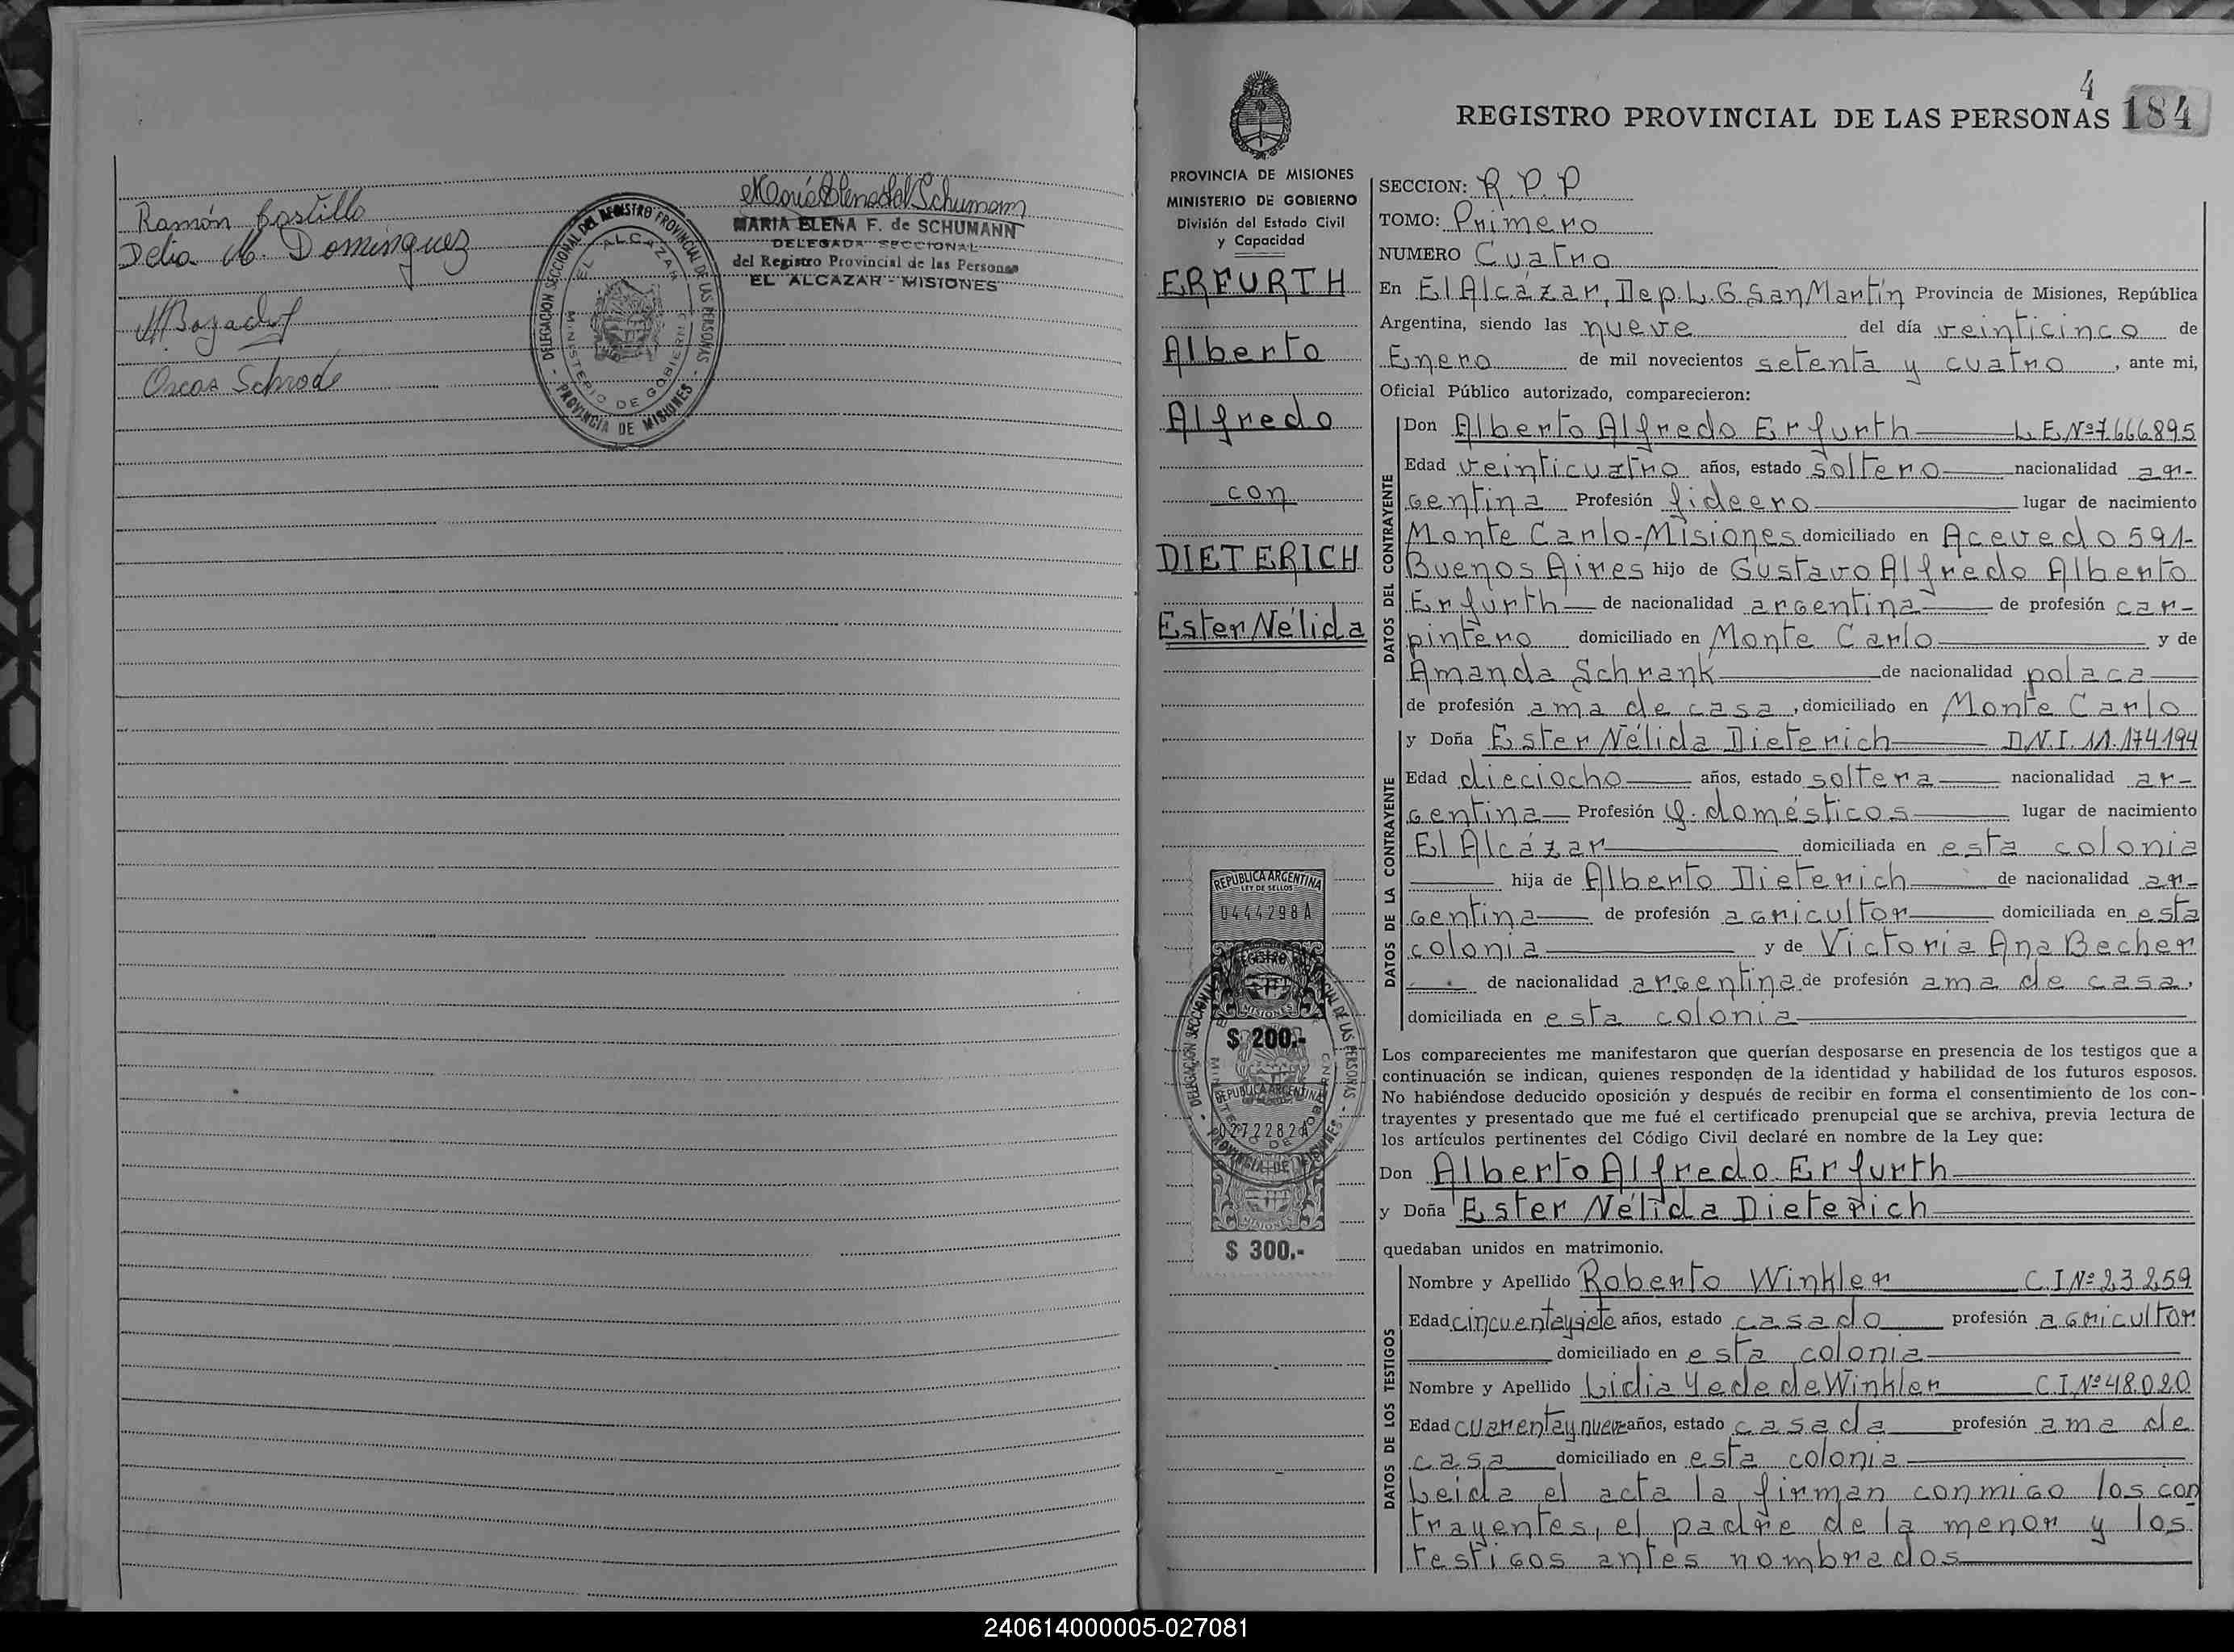 Ramón Castillo
Delia M. Dominguez
Oscar Schrode
MARIA ELENA F. de SCHUMANN
DELEGADA SECCIONAL
del Registro Provincial de las Personas
EL ALCAZAR - MISIONES
DELEGACION SECCIONAL DEL REGISTRO PROVINCIAL DE LAS PERSONAS
EL ALCAZAR
MINISTERIO DE GOBIERNO
- PROVINCIA DE MISIONES -
4
REGISTRO PROVINCIAL DE LAS PERSONAS 184
PROVINCIA DE MISIONES
MINISTERIO DE GOBIERNO
División del Estado Civil
y Capacidad
ERFURTH
Alberto
Alfredo
con
DIETERICH
Ester Nélida
REPUBLICA ARGENTINA
LEY DE SELLOS
0444298A
MISIONES
$ 200.-
REPUBLICA ARGENTINA
0272282A
MISIONES
$ 300.-
SECCION: R.P.P.
TOMO: Primero
NUMERO Cuatro
En El Alcázar, Dep. L. G. San Martín Provincia de Misiones, República
Argentina, siendo las nueve del día veinticinco de
Enero de mil novecientos setenta y cuatro, ante mi,
Oficial Público autorizado, comparecieron:
DATOS DEL CONTRAYENTE
Don Alberto Alfredo Erfurth L.E.Nº 7.666.895
Edad veinticuatro años, estado soltero nacionalidad ar-
gentina Profesión fideero lugar de nacimiento
Monte Carlo-Misiones domiciliado en Acevedo 591-
Buenos Aires hijo de Gustavo Alfredo Alberto
Erfurth de nacionalidad argentina de profesión car-
pintero domiciliado en Monte Carlo y de
Amanda Schrank de nacionalidad polaca
de profesión ama de casa, domiciliado en Monte Carlo
DATOS DE LA CONTRAYENTE
y Doña Ester Nélida Dieterich D.N.I. 11.174.194
Edad dieciocho años, estado soltera nacionalidad ar-
gentina Profesión q. domésticos lugar de nacimiento
El Alcázar domiciliada en esta colonia
hija de Alberto Dieterich de nacionalidad ar-
gentina de profesión agricultor domiciliada en esta
colonia y de Victoria Ana Becher
de nacionalidad argentina de profesión ama de casa,
domiciliada en esta colonia
Los comparecientes me manifestaron que querían desposarse en presencia de los testigos que a
continuación se indican, quienes responden de la identidad y habilidad de los futuros esposos.
No habiéndose deducido oposición y después de recibir en forma el consentimiento de los con-
trayentes y presentado que me fué el certificado prenupcial que se archiva, previa lectura de
los artículos pertinentes del Código Civil declaré en nombre de la Ley que:
Don Alberto Alfredo Erfurth
y Doña Ester Nélida Dieterich
quedaban unidos en matrimonio.
DATOS DE LOS TESTIGOS
Nombre y Apellido Roberto Winkler C.I.Nº 23.259
Edad cincuenta y siete años, estado casado profesión agricultor
domiciliado en esta colonia
Nombre y Apellido Lidia Yede de Winkler C.I.Nº 48.020
Edad cuarenta y nueve años, estado casada profesión ama de
casa domiciliado en esta colonia
Leída el acta la firman conmigo los con
trayentes, el padre de la menor y los
testigos antes nombrados
240614000005-027081